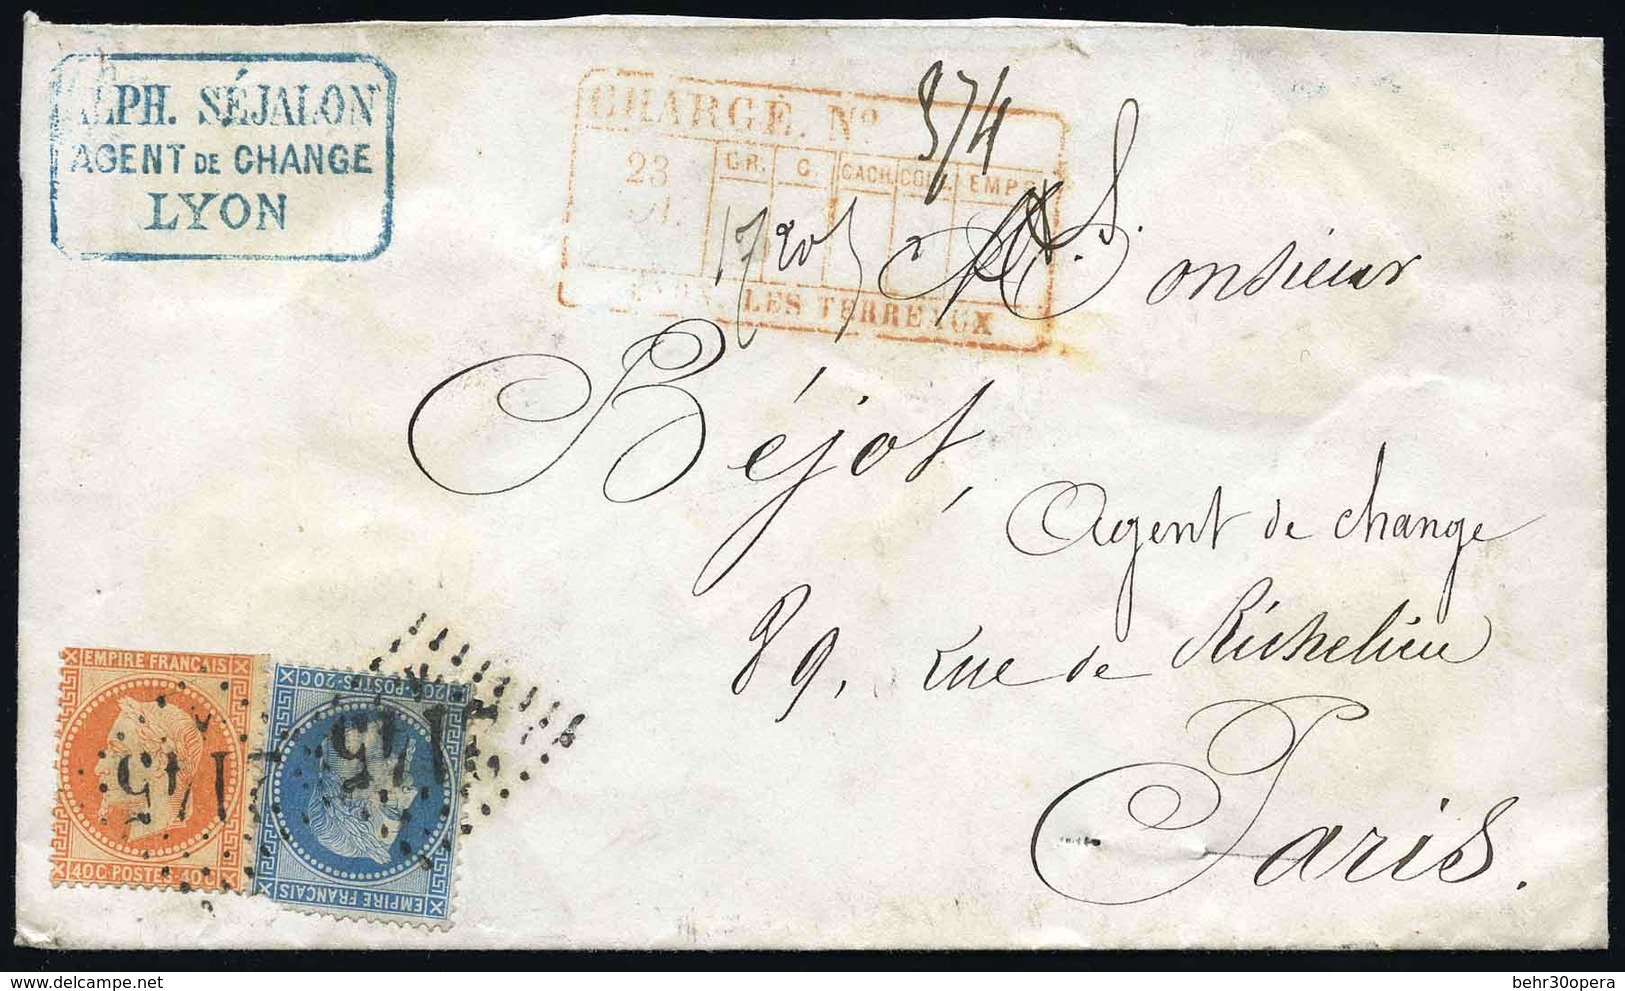 ALPH. SÉJALON
AGENT DE CHANGE
LYON
CHARGÉ. Nº 374
23
GR. C. CACH. COUL. EMP.
17 20 5
LYON. LES TERREAUX
Monsieur
S.
Béjot,
Agent de change
89, Rue de Richelieu
Paris.
EMPIRE FRANÇAIS
40C-POSTES-40C
20C-POSTES-20C
EMPIRE FRANÇAIS
145
145
behr30opera